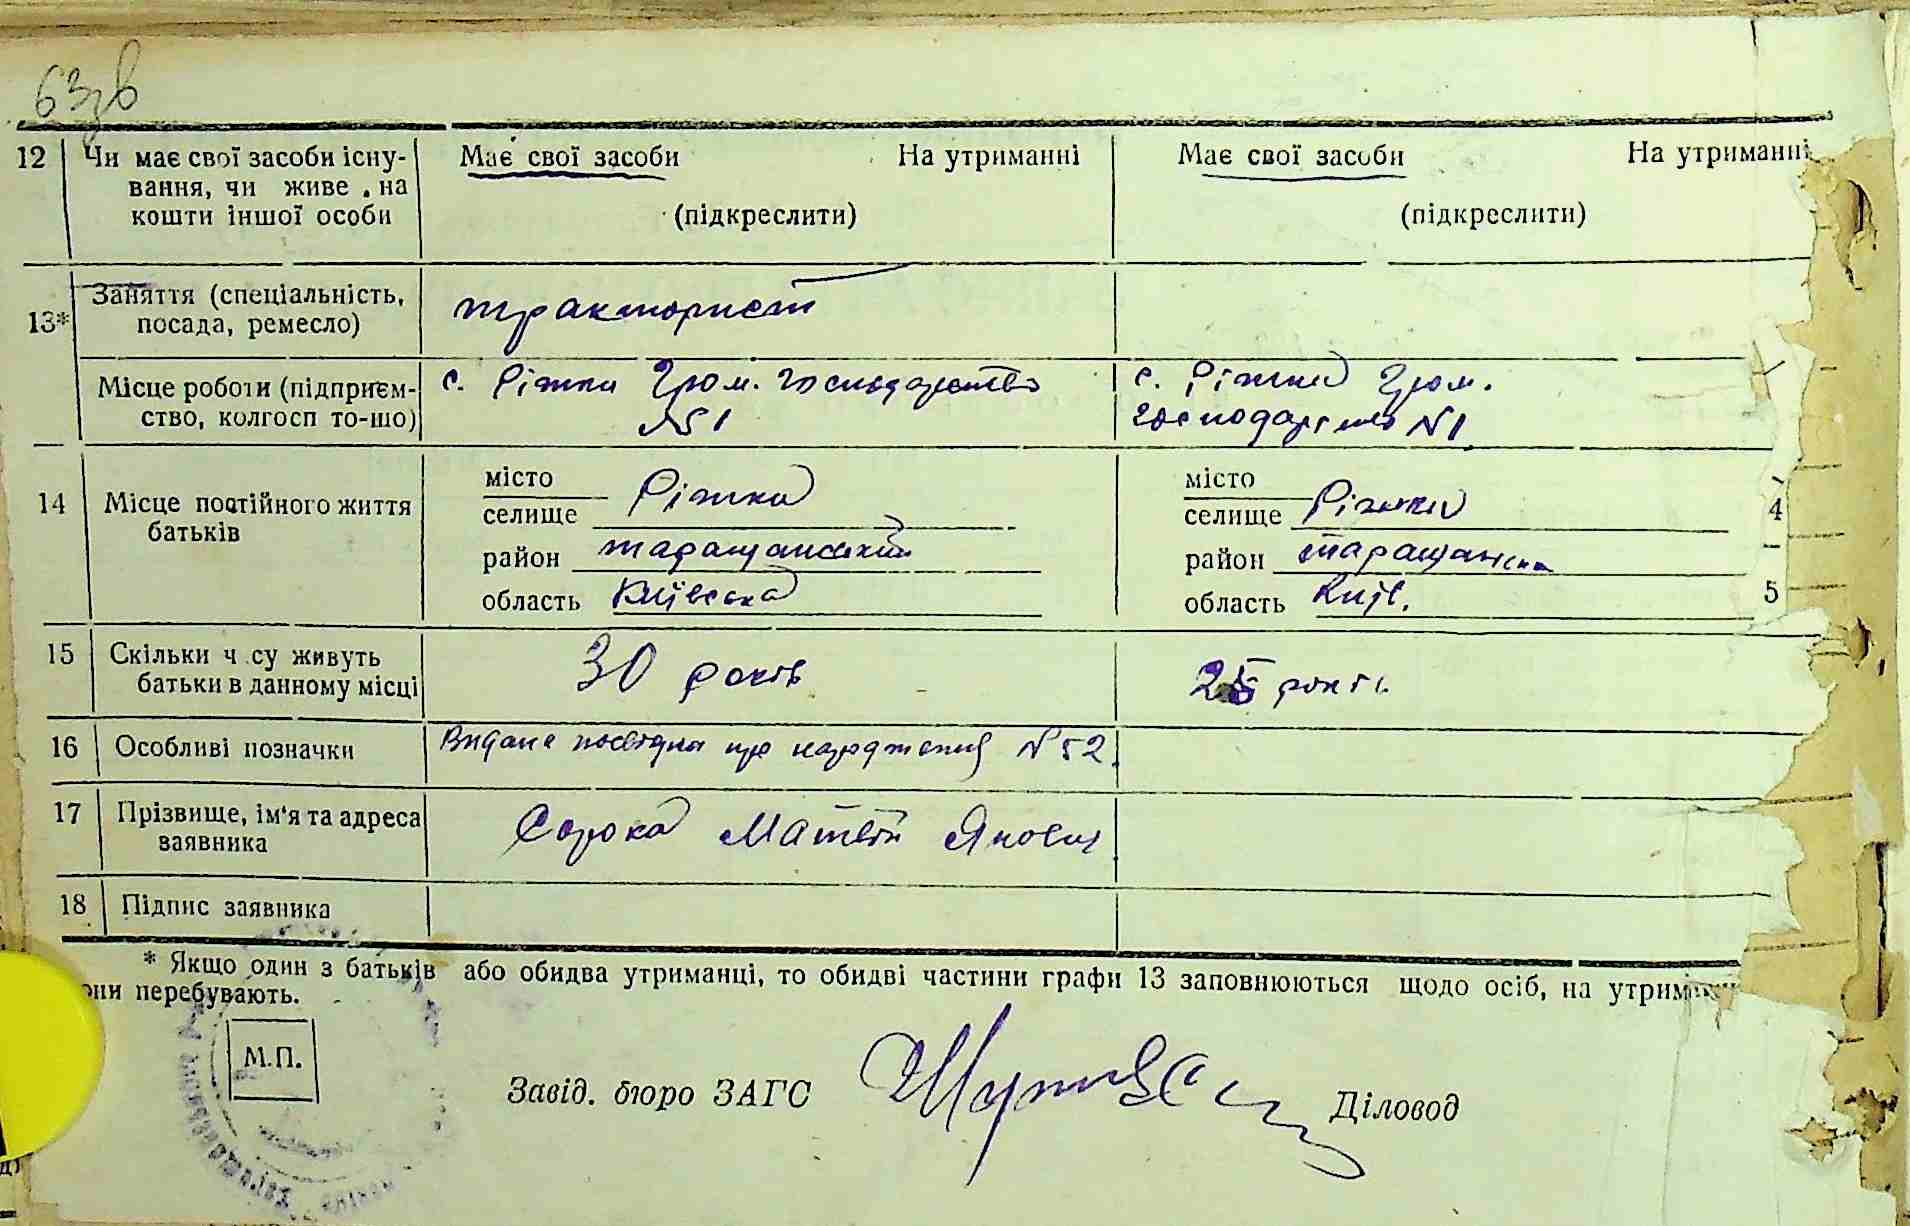 63зв
12 Чи має свої засоби існу- Має свої засоби На утриманні Має свої засоби На утриманні
вання, чи живе на
кошти іншої особи (підкреслити) (підкреслити)
13* Заняття (спеціальність, тракторист
посада, ремесло)
Місце роботи (підприєм- с. Ріжки Гром. господарство с. Ріжки Гром.
ство, колгосп то-що) №1 господарство №1
14 Місце постійного життя місто Ріжки місто Ріжки
батьків селище селище 4
район таращанський район таращанськ
область Київська область Київ. 5
15 Скільки ч су живуть 30 років 25 років
батьки в данному місці
16 Особливі позначки Видана посвідка про народження №52
17 Прізвище, ім'я та адреса Сорока Матвій Якович
заявника
18 Підпис заявника
* Якщо один з батьків або обидва утриманці, то обидві частини графи 13 заповнюються щодо осіб, на утрим
они перебувають.
М.П.
Завід. бюро ЗАГС Діловод